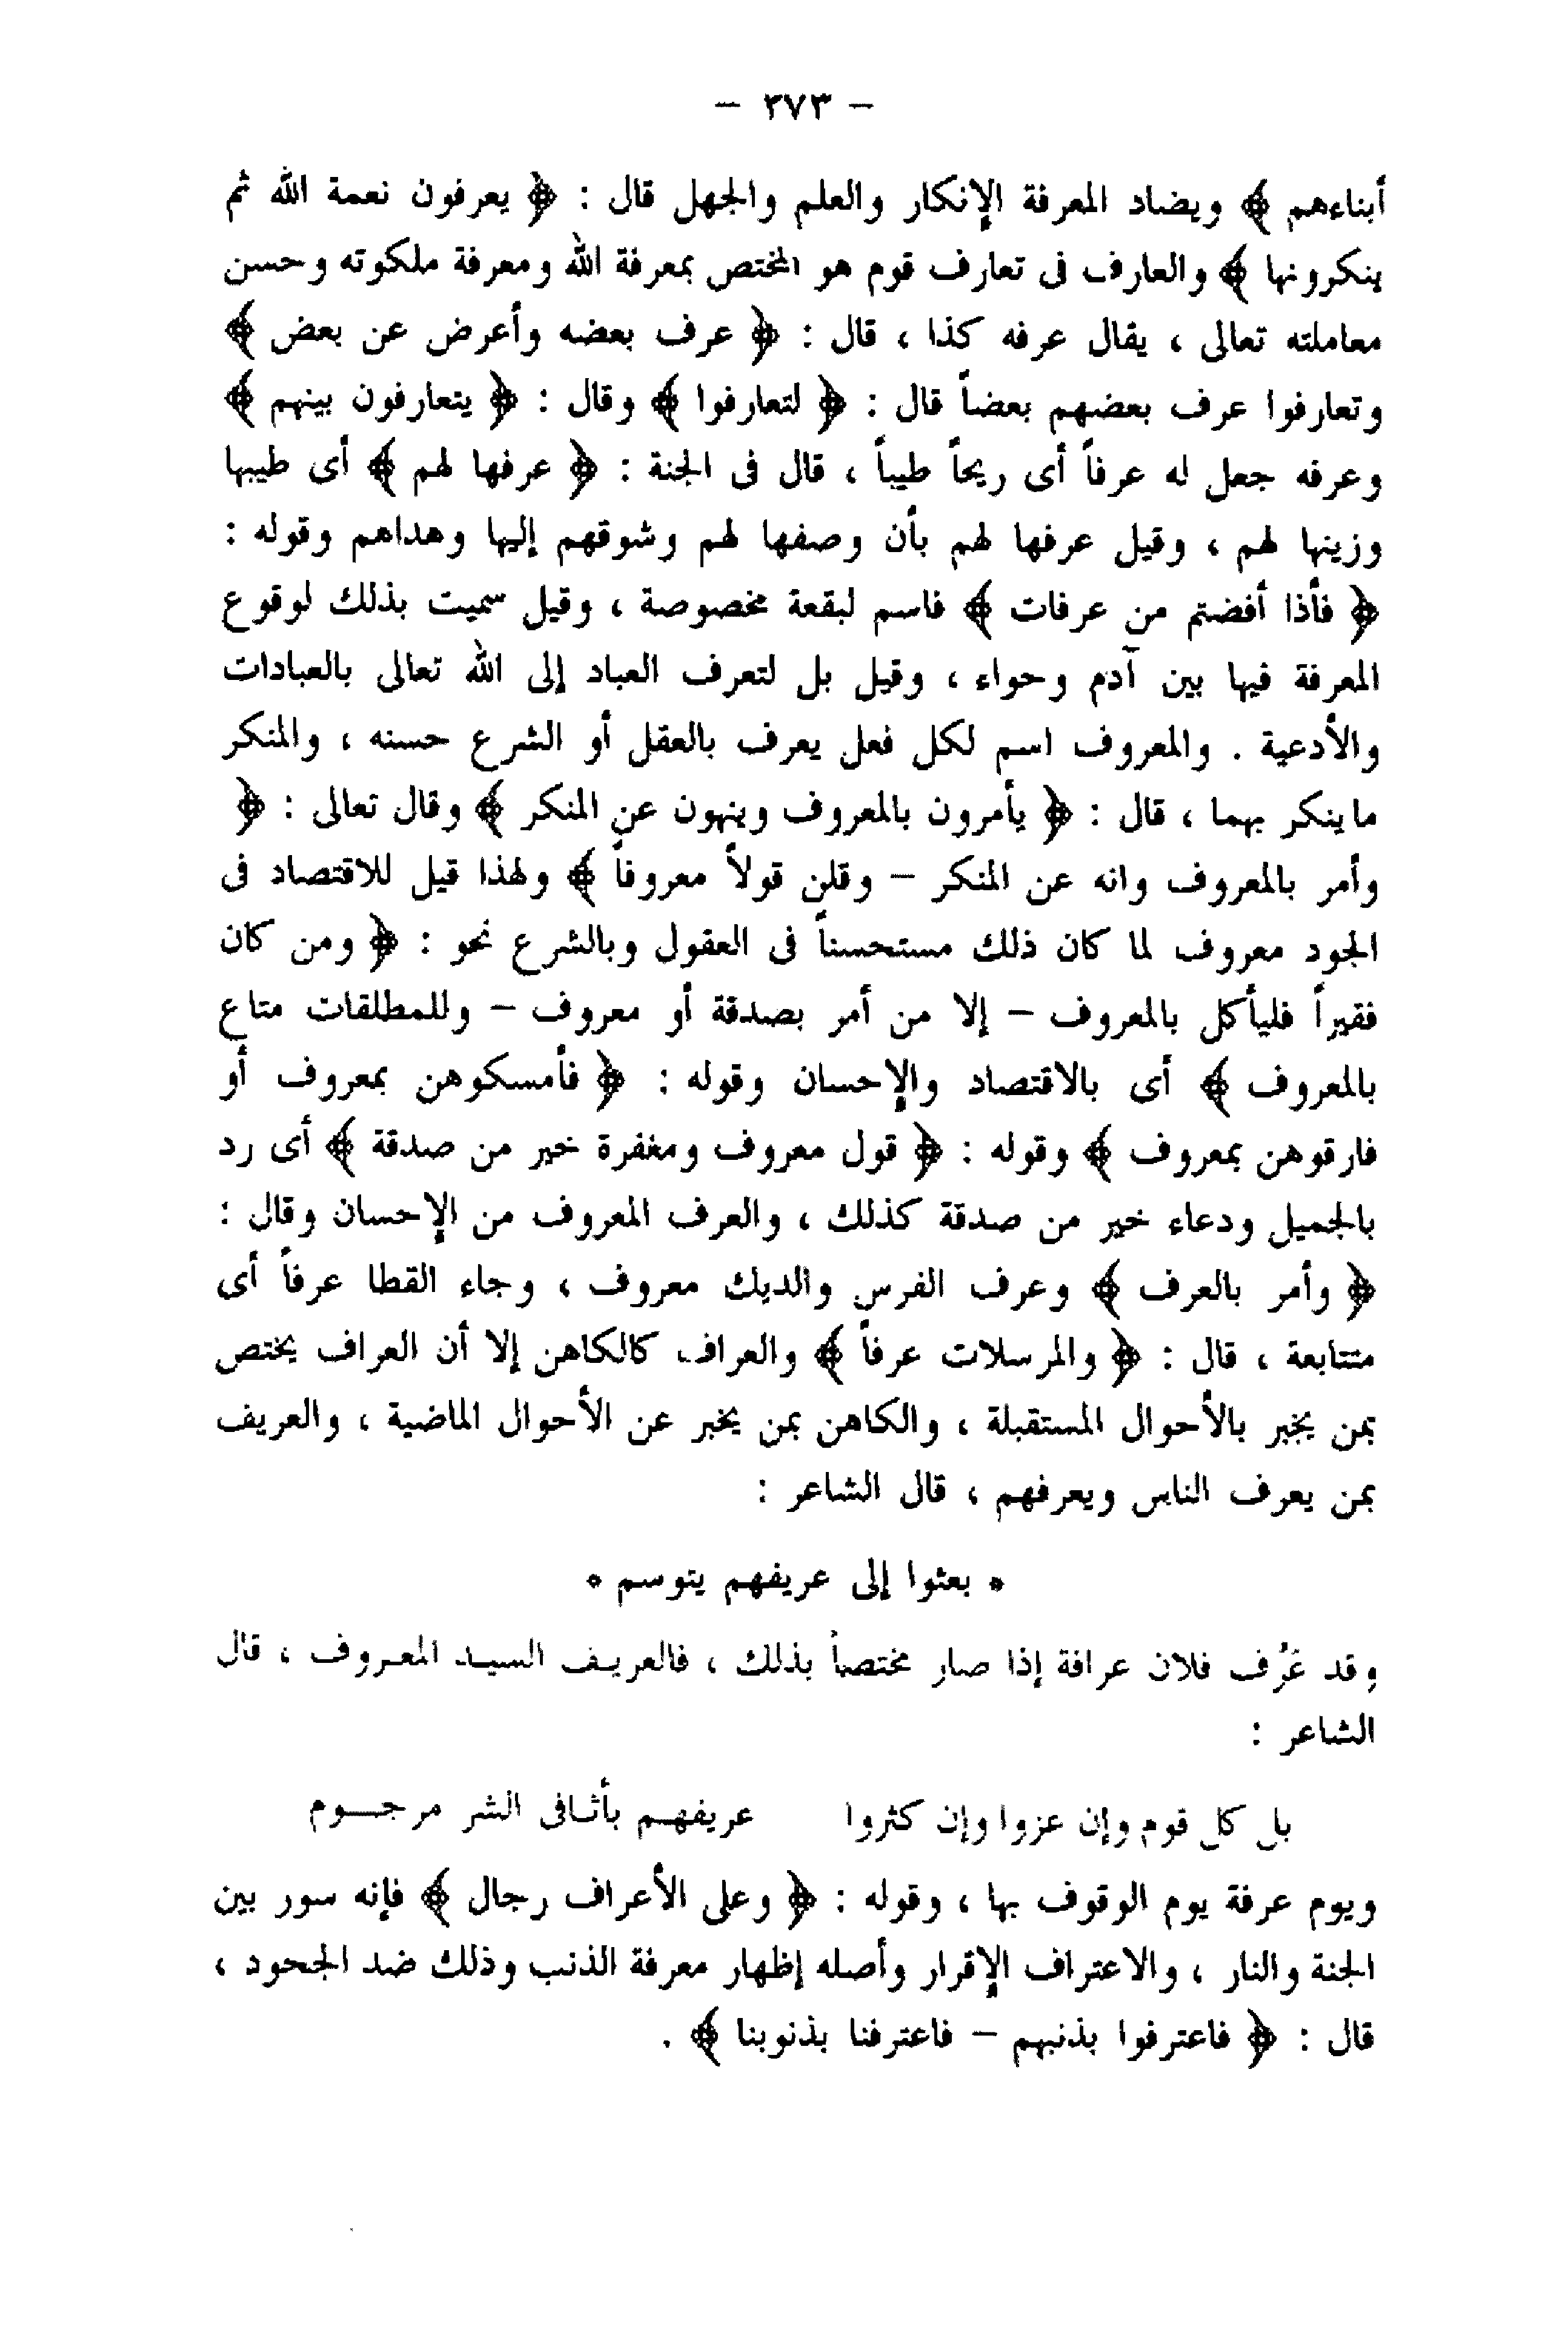 — ٣٧٣ —
أبناءهم ﴾ ويضاد المعرفة الإنكار والعلم والجهل قال : ﴿ يعرفون نعمة الله ثم
ينكرونها ﴾ والعارف فى تعارف قوم هو المختص بمعرفة الله ومعرفة ملكوته وحسن
معاملته تعالى ، يقال عرفه كذا ، قال : ﴿ عرف بعضه وأعرض عن بعض ﴾
وتعارفوا عرف بعضهم بعضاً قال : ﴿ لتعارفوا ﴾ وقال : ﴿ يتعارفون بينهم ﴾
وعرفه جعل له عرفاً أى ريحاً طيباً ، قال فى الجنة : ﴿ عرفها لهم ﴾ أى طيبها
وزينها لهم ، وقيل عرفها لهم بأن وصفها لهم وشوقهم إليها وهداهم وقوله :
﴿ فأذا أفضتم من عرفات ﴾ فاسم لبقعة مخصوصة ، وقيل سميت بذلك لوقوع
المعرفة فيها بين آدم وحواء ، وقيل بل لتعرف العباد إلى الله تعالى بالعبادات
والأدعية . والمعروف اسم لكل فعل يعرف بالعقل أو الشرع حسنه ، والمنكر
ماينكر بهما ، قال : ﴿ يأمرون بالمعروف وينهون عن المنكر ﴾ وقال تعالى : ﴿
وأمر بالمعروف وانه عن المنكر – وقلن قولاً معروفاً ﴾ ولهذا قيل للاقتصاد فى
الجود معروف لما كان ذلك مستحسناً فى العقول وبالشرع نحو : ﴿ ومن كان
فقيراً فليأكل بالمعروف – إلا من أمر بصدقة أو معروف – وللمطلقات متاع
بالمعروف ﴾ أى بالاقتصاد والإحسان وقوله : ﴿ فأمسكوهن بمعروف أو
فارقوهن بمعروف ﴾ وقوله : ﴿ قول معروف ومغفرة خير من صدقة ﴾ أى رد
بالجميل ودعاء خير من صدقة كذلك ، والعرف المعروف من الإحسان وقال :
﴿ وأمر بالعرف ﴾ وعرف الفرس والديك معروف ، وجاء القطا عرفاً أى
متتابعة ، قال : ﴿ والمرسلات عرفاً ﴾ والعراف كالكاهن إلا أن العراف يختص
بمن يخبر بالأحوال المستقبلة ، والكاهن بمن يخبر عن الأحوال الماضية ، والعريف
بمن يعرف الناس ويعرفهم ، قال الشاعر :
* بعثوا إلى عريفهم يتوسم *
وقد عَرُف فلان عرافة إذا صار مختصاً بذلك ، فالعريف السيد المعروف ، قال
الشاعر :
بل كل قوم وإن عزوا وإن كثروا عريفهم بأثافى الشر مرجوم
ويوم عرفة يوم الوقوف بها ، وقوله : ﴿ وعلى الأعراف رجال ﴾ فإنه سور بين
الجنة والنار ، والاعتراف الإقرار وأصله إظهار معرفة الذنب وذلك ضد الجحود ،
قال : ﴿ فاعترفوا بذنبهم – فاعترفنا بذنوبنا ﴾ .